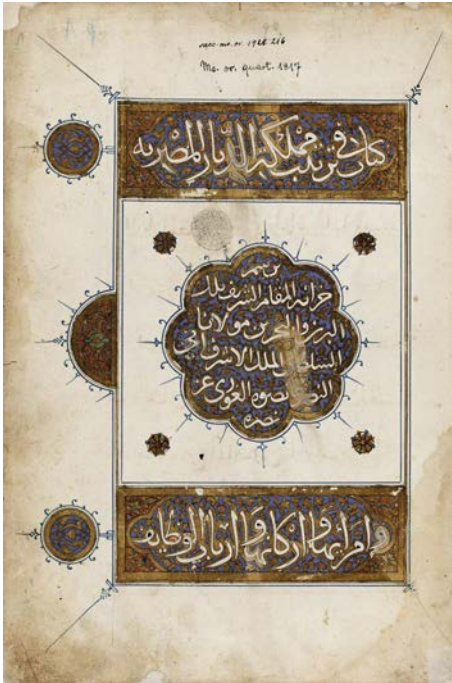 acc. ms. or. 1928.216
Ms. or. quart. 1817
كتاب في ترتيب مملكة الديار المصرية
برسم
خزانة المقام الشريف ملك
البرين والبحرين مولانا
السلطان الملك الاشرف ابي
النصر قانصوه الغوري عز
نصره
وامرايها واركانها وارباب الوظايف